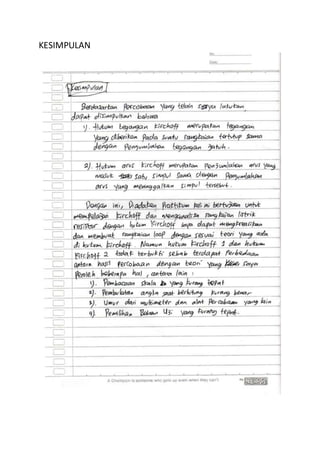 KESIMPULAN
No:
Date:
Kesimpulan
Berdasarkan Percobaan yang telah saya lakukan
dapat disimpulkan bahwa
1). Hukum tegangan kirchoff merupakan tegangan
yang diberikan Pada suatu rangkaian tertutup sama
dengan Penjumlahan tegangan jatuh.
2). Hukum arus kirchoff merupakan Penjumlahan arus yang
masuk satu simpul sama dengan Penjumlahan
arus yang meninggalkan simpul tersebut.
Dengan ini, Diadakan Praktikum kali ini bertujuan untuk
mempelajari kirchoff dan menganalisa rangkaian listrik
resistor dengan hukum kirchoff saya dapat
dan membuat rangkaian loop dengan sesuai teori yang ada
di hukum kirchoff. Namun hukum kirchoff 1 dan hukum
Kirchoff 2 tidak terbukti sebab terdapat Perbedaan
antara hasil Percobaan dengan teori yang saya
Peroleh beberapa hal, antara lain :
1). Pembacaan skala yang kurang tepat
2). Pembulatan angka saat berhitung kurang benar
3). Umur dari multimeter dan alat Percobaan yang lain
4). Pemilihan Bahan Uji yang kurang tepat.
A Champion is someone who gets up even when they can't.